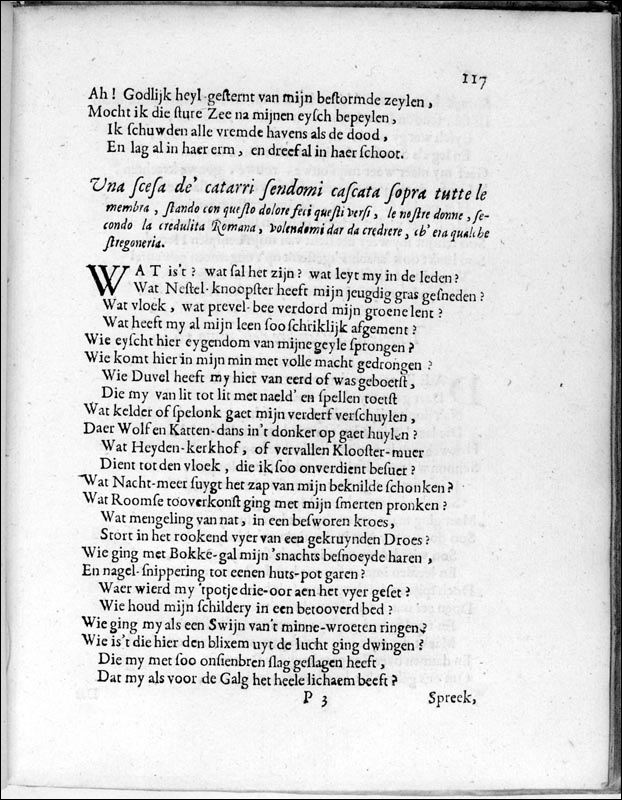 117
Ah! Godlijk heyl-gesternt van mijn bestormde zeylen,
Mocht ik die sture Zee na mijnen eysch bepeylen,
Ik schuwden alle vremde havens als de dood,
En lag al in haer erm, en dreef al in haer schoot.
Una scesa de' catarri sendomi cascata sopra tutte le
membra, stando con questo dolore feci questi versi, le nostre donne, se-
condo la credulita Romana, volendomi dar da credrere, ch'era qualche
stregoneria.
WAT is't? wat sal het zijn? wat leyt my in de leden?
Wat Nestel-knoopster heeft mijn jeugdig gras gesneden?
Wat vloek, wat prevel-bee verdord mijn groene lent?
Wat heeft my al mijn leen soo schriklijk afgement?
Wie eyscht hier eygendom van mijne geyle sprongen?
Wie komt hier in mijn min met volle macht gedrongen?
Wie Duvel heeft my hier van eerd of was geboetst,
Die my van lit tot lit met naeld' en spellen toetst
Wat kelder of spelonk gaet mijn verderf verschuylen,
Daer Wolf en Katten-dans in't donker op gaet huylen?
Wat Heyden-kerkhof, of vervallen Klooster-muer
Dient tot den vloek, die ik soo onverdient besuer?
Wat Nacht-meer suygt het zap van mijn beknilde schonken?
Wat Roomse tooverkonst ging met mijn smerten pronken?
Wat mengeling van nat, in een besworen kroes,
Stort in het rookend vyer van een gekruynden Droes?
Wie ging met Bokke-gal mijn 'snachts besnoeyde haren,
En nagel-snippering tot eenen huts-pot garen?
Waer wierd my 'tpotje drie-oor aen het vyer geset?
Wie houd mijn schildery in een betooverd bed?
Wie ging my als een Swijn van't minne-wroeten ringen?
Wie is't die hier den blixem uyt de lucht ging dwingen?
Die my met soo onsienbren slag geslagen heeft,
Dat my als voor de Galg het heele lichaem beeft?
P 3 Spreek,